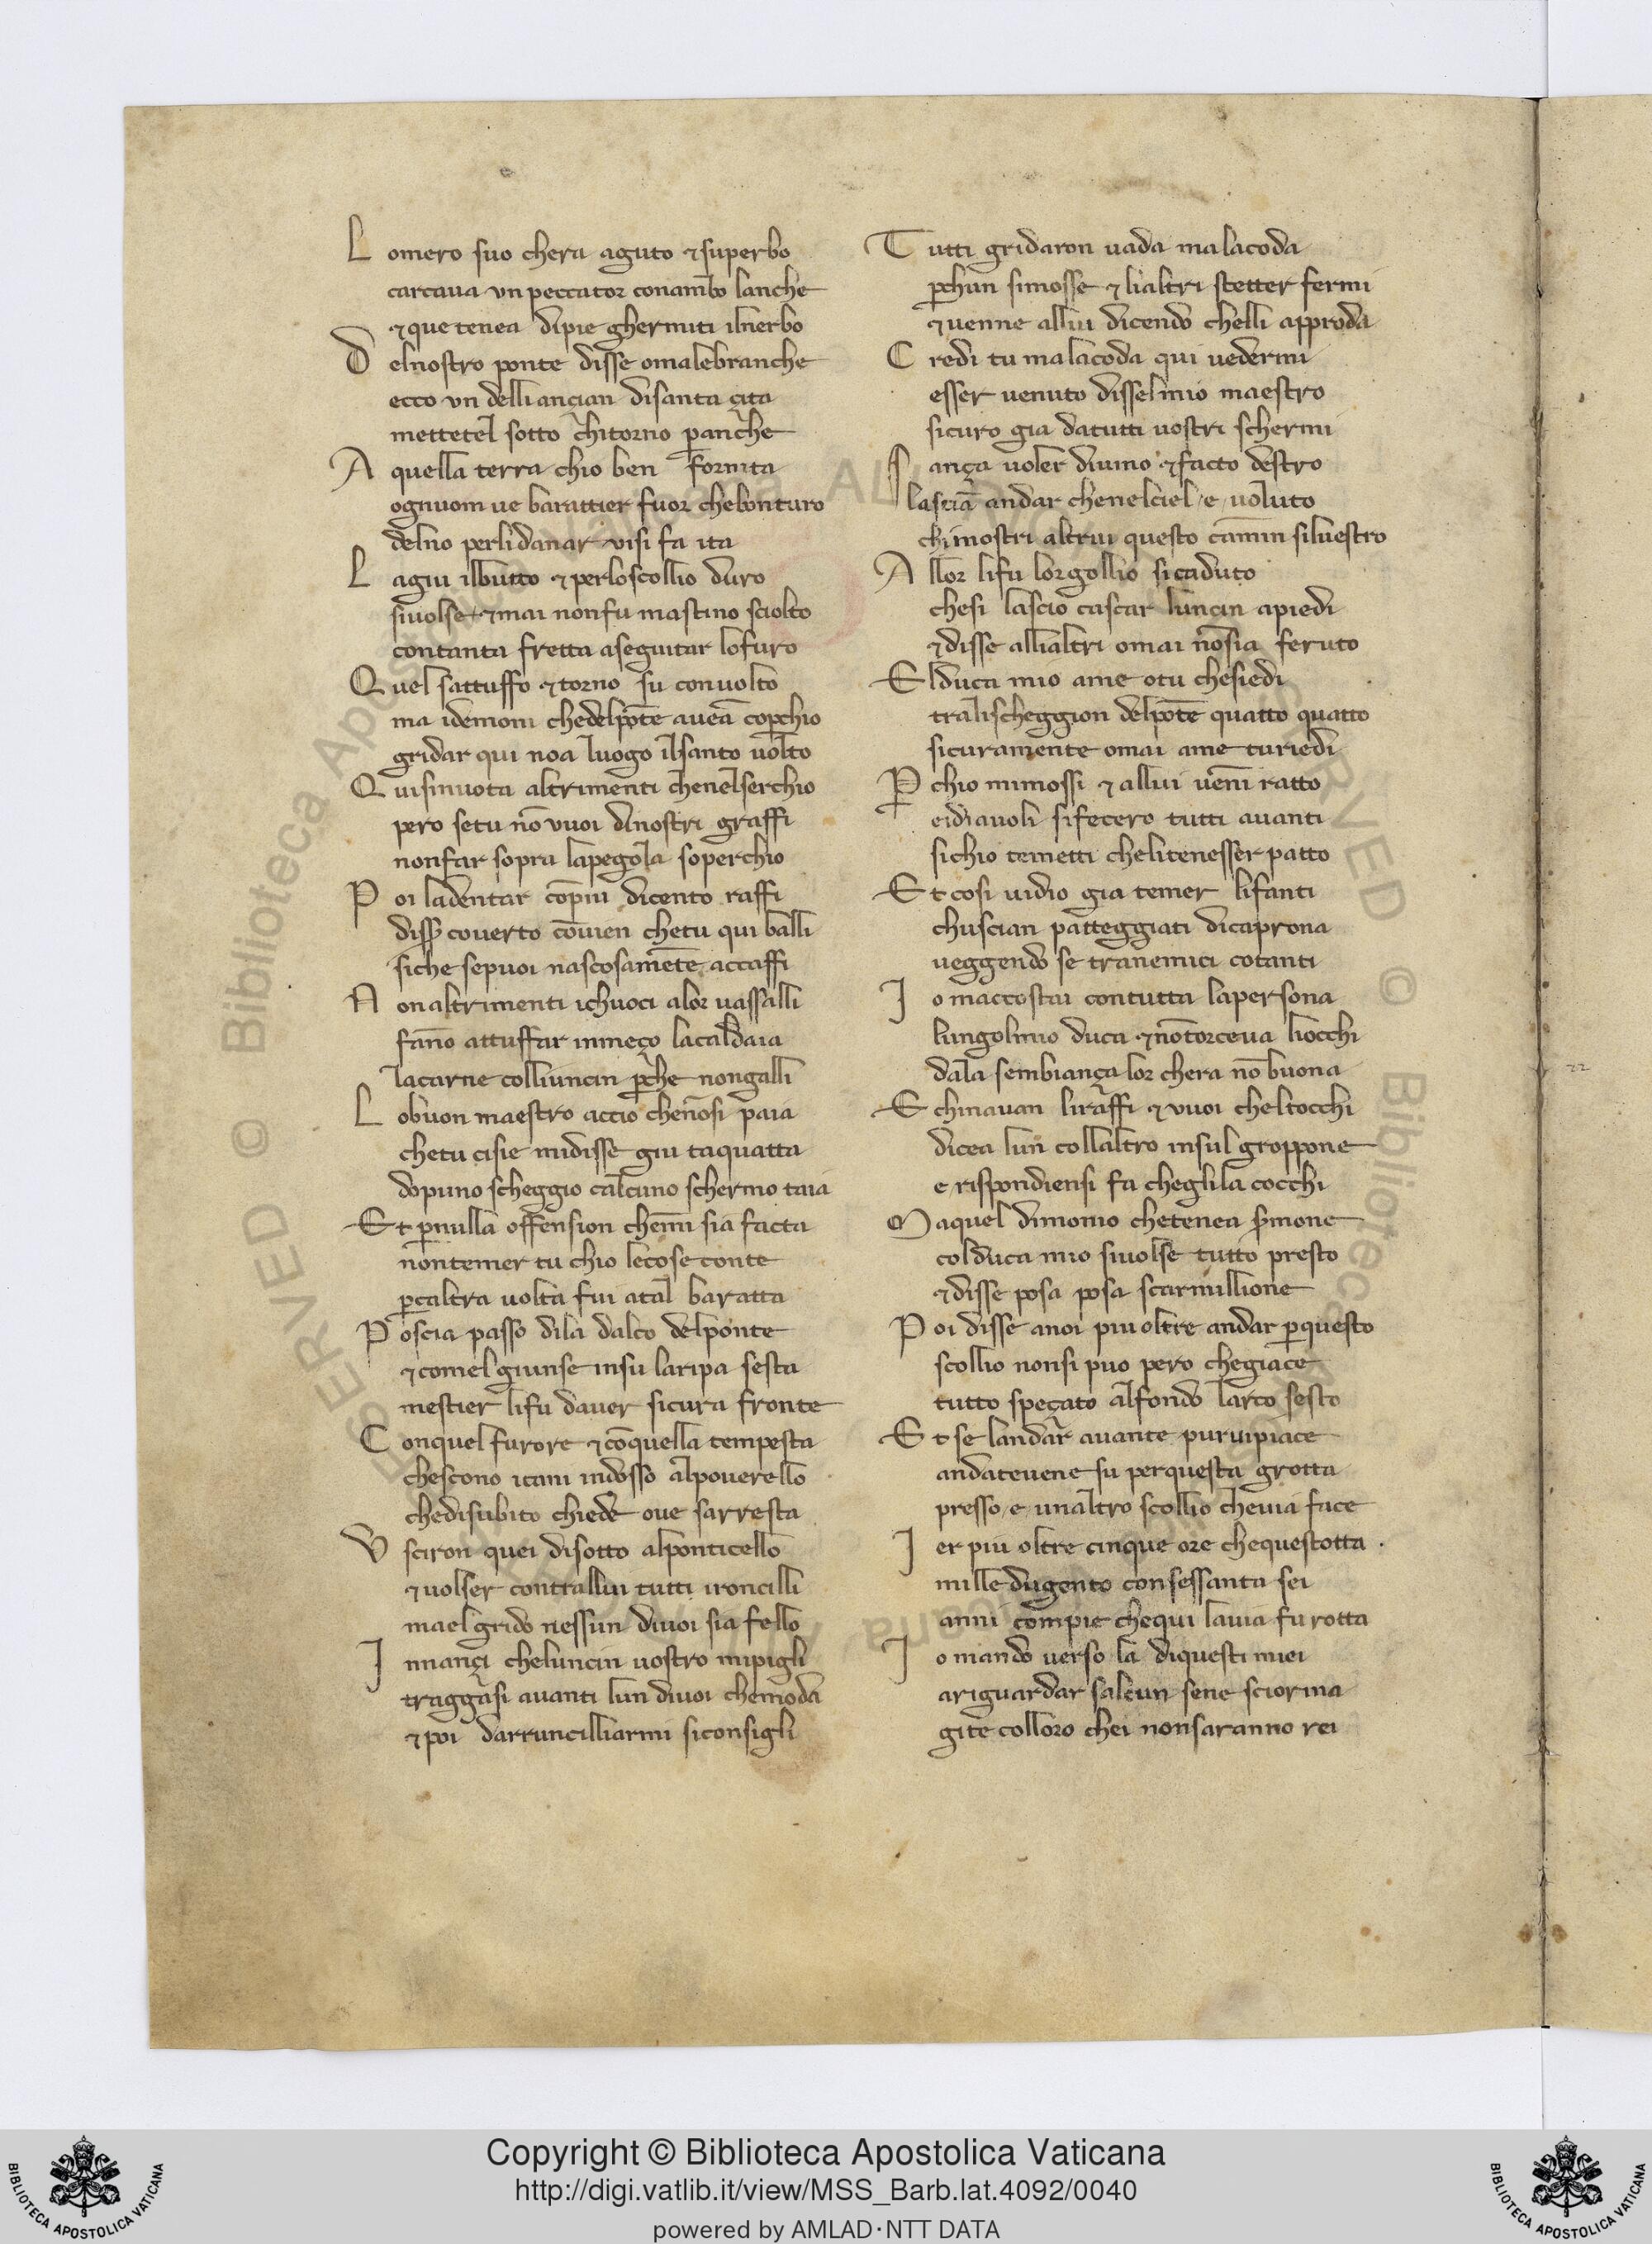 L omero suo chera aguto ⁊ superbo
carcaua vn peccator conambo lanche
⁊ que tenea dipie ghermiti ilnerbo
D elnostro ponte disse omalebranche
ecco vn delli ançian disanta çita
mettetel sotto chitorno panche
A quella terra chio ben fornita
ognuom ue barattier fuor chebonturo
delno perlidanar visi fa ita
L agiu ilbutto ⁊ perloscollio duro
siuolse ⁊ mai nonfu mastino sciolto
contanta fretta aseguitar lofuro
Q uel sattuffo ⁊ torno su conuolto
ma idemoni chedelpōte aueā copchio
gridar qui noa luogo ilsanto uolto
Q uisinuota altrimenti chenelserchio
pero setu nō vuoi dinostri graffi
nonfar sopra lapegola soperchio
P oi ladentar cōpiu dicento raffi
disser couerto cōuien chetu qui balli
siche sepuoi nascosamēte accaffi
N on altrimenti ichuoci alor uassalli
fāno attuffar inmeço lacaldaia
lacarne colliuncin pche nongalli
L obuon maestro accio chenōsi paia
chetu cisie midisse giu taquatta
dopuno scheggio calcuno schermo taia
Et pnulla offension chemi sia facta
nontemer tu chio lecose conte
pcaltra uolta fui atal baratta
P oscia passo dila dalco delponte
⁊ comel giunse insu laripa sesta
mestier lifu dauer sicura fronte
C onquel furore ⁊ cōquella tempesta
chescono icani indosso alpouerello
chedisubito chiede oue sarresta
V sciron quei disotto alponticello
⁊ uolser contrallui tutti ironcilli
mael grido nessun diuoi sia fello
I nnançi cheluncin uostro mipigli
traggasi auanti lun diuoi chemoda
⁊ poi darruncilliarmi siconsigli
T utti gridaron uada malacoda
pchun simosse ⁊ lialtri stetter fermi
⁊ uenne allui dicendo chelli approda
C redi tu malacoda qui uedermi
esser uenuto disselmio maestro
sicuro gia datutti uostri schermi
S ança uoler diuino ⁊ facto destro
lasciā andar chenelciel e uoluto
chimostri altrui questo camin siluestro
A llor lifu lorgollio sicaduto
chesi lascio cascar luncin apiedi
⁊ disse allialtri omai nōsia feruto
E lduca mio ame otu chesiedi
tralischeggion delpōte quatto quatto
sicuramente omai ame turiedi
P chio mimossi ⁊ allui ueni ratto
eidiauoli sifecero tutti auanti
sichio temetti chelitenesser patto
Et cosi uidio gia temer lifanti
chuscian patteggiati dicaprona
ueggendo se tranemici cotanti
I o maccostai contutta lapersona
lungolmio duca ⁊ nōtorceua liocchi
dala sembiança lor chera nō buona
E chinauan liraffi ⁊ vuoi cheltocchi
dicea lun collaltro insul groppone
e rispondiensi fa cheglila cocchi
M aquel dimonio chetenea sermone
colduca mio siuolse tutto presto
⁊ disse posa posa scarmillione
P oi disse anoi piu oltre andar pquesto
scollio nonsi puo pero chegiace
tutto speçato alfondo larco sesto
E t se landar auante puruipiace
andateuene su perquesta grotta
presso e unaltro scollio cheuia face
I er piu oltre cinque ore chequestotta .
mille dugento consessanta sei
anni compie chequi lauia fu rotta
I o mando uerso la diquesti miei
ariguardar salcun sene sciorina
gite colloro chei nonsaranno rei
22
© Biblioteca Apostolica Vaticana
Copyright © Biblioteca Apostolica Vaticana
http://digi.vatlib.it/view/MSS_Barb.lat.4092/0040
powered by AMLAD·NTT DATA
BIBLIOTECA APOSTOLICA VATICANA
BIBLIOTECA APOSTOLICA VATICANA